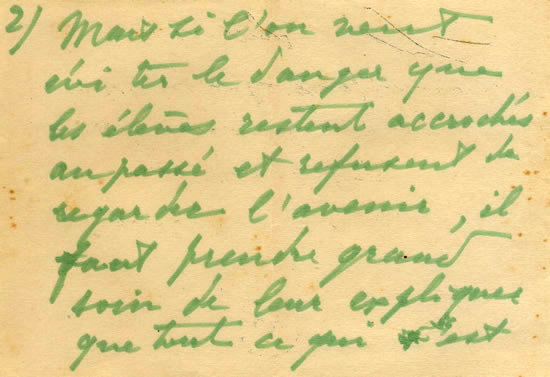 2) Mais si l'on veut
éviter le danger que
les élèves restent accrochés
au passé et refusent de
regarder l'avenir, il
faut prendre grand
soin de leur expliquer
que tout ce qui s'est